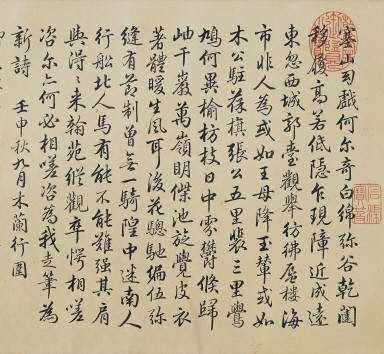 塞山幻戲何尔奇白綿弥谷乾闥
移履高若低隱乍現障近成遠
東忽西城郭臺觀舉彷彿蜃樓海
市非人為或如王母降玉輦或如
木公駐葆旗張公五里裴三里鷽
鳩何異榆枋枝日中雰鬱倏歸
岫千巖萬嶺明傑池旋覺皮衣
著體暖生風耳後花驄馳編伍弥
縫有節制曾無一騎隍中迷南人
行船北人馬有能不能難強其肩
與得〻來翰苑縱觀卒愕相嗟
咨尔亦何必相嗟咨為我走筆為
新詩 壬申秋九月木蘭行圍